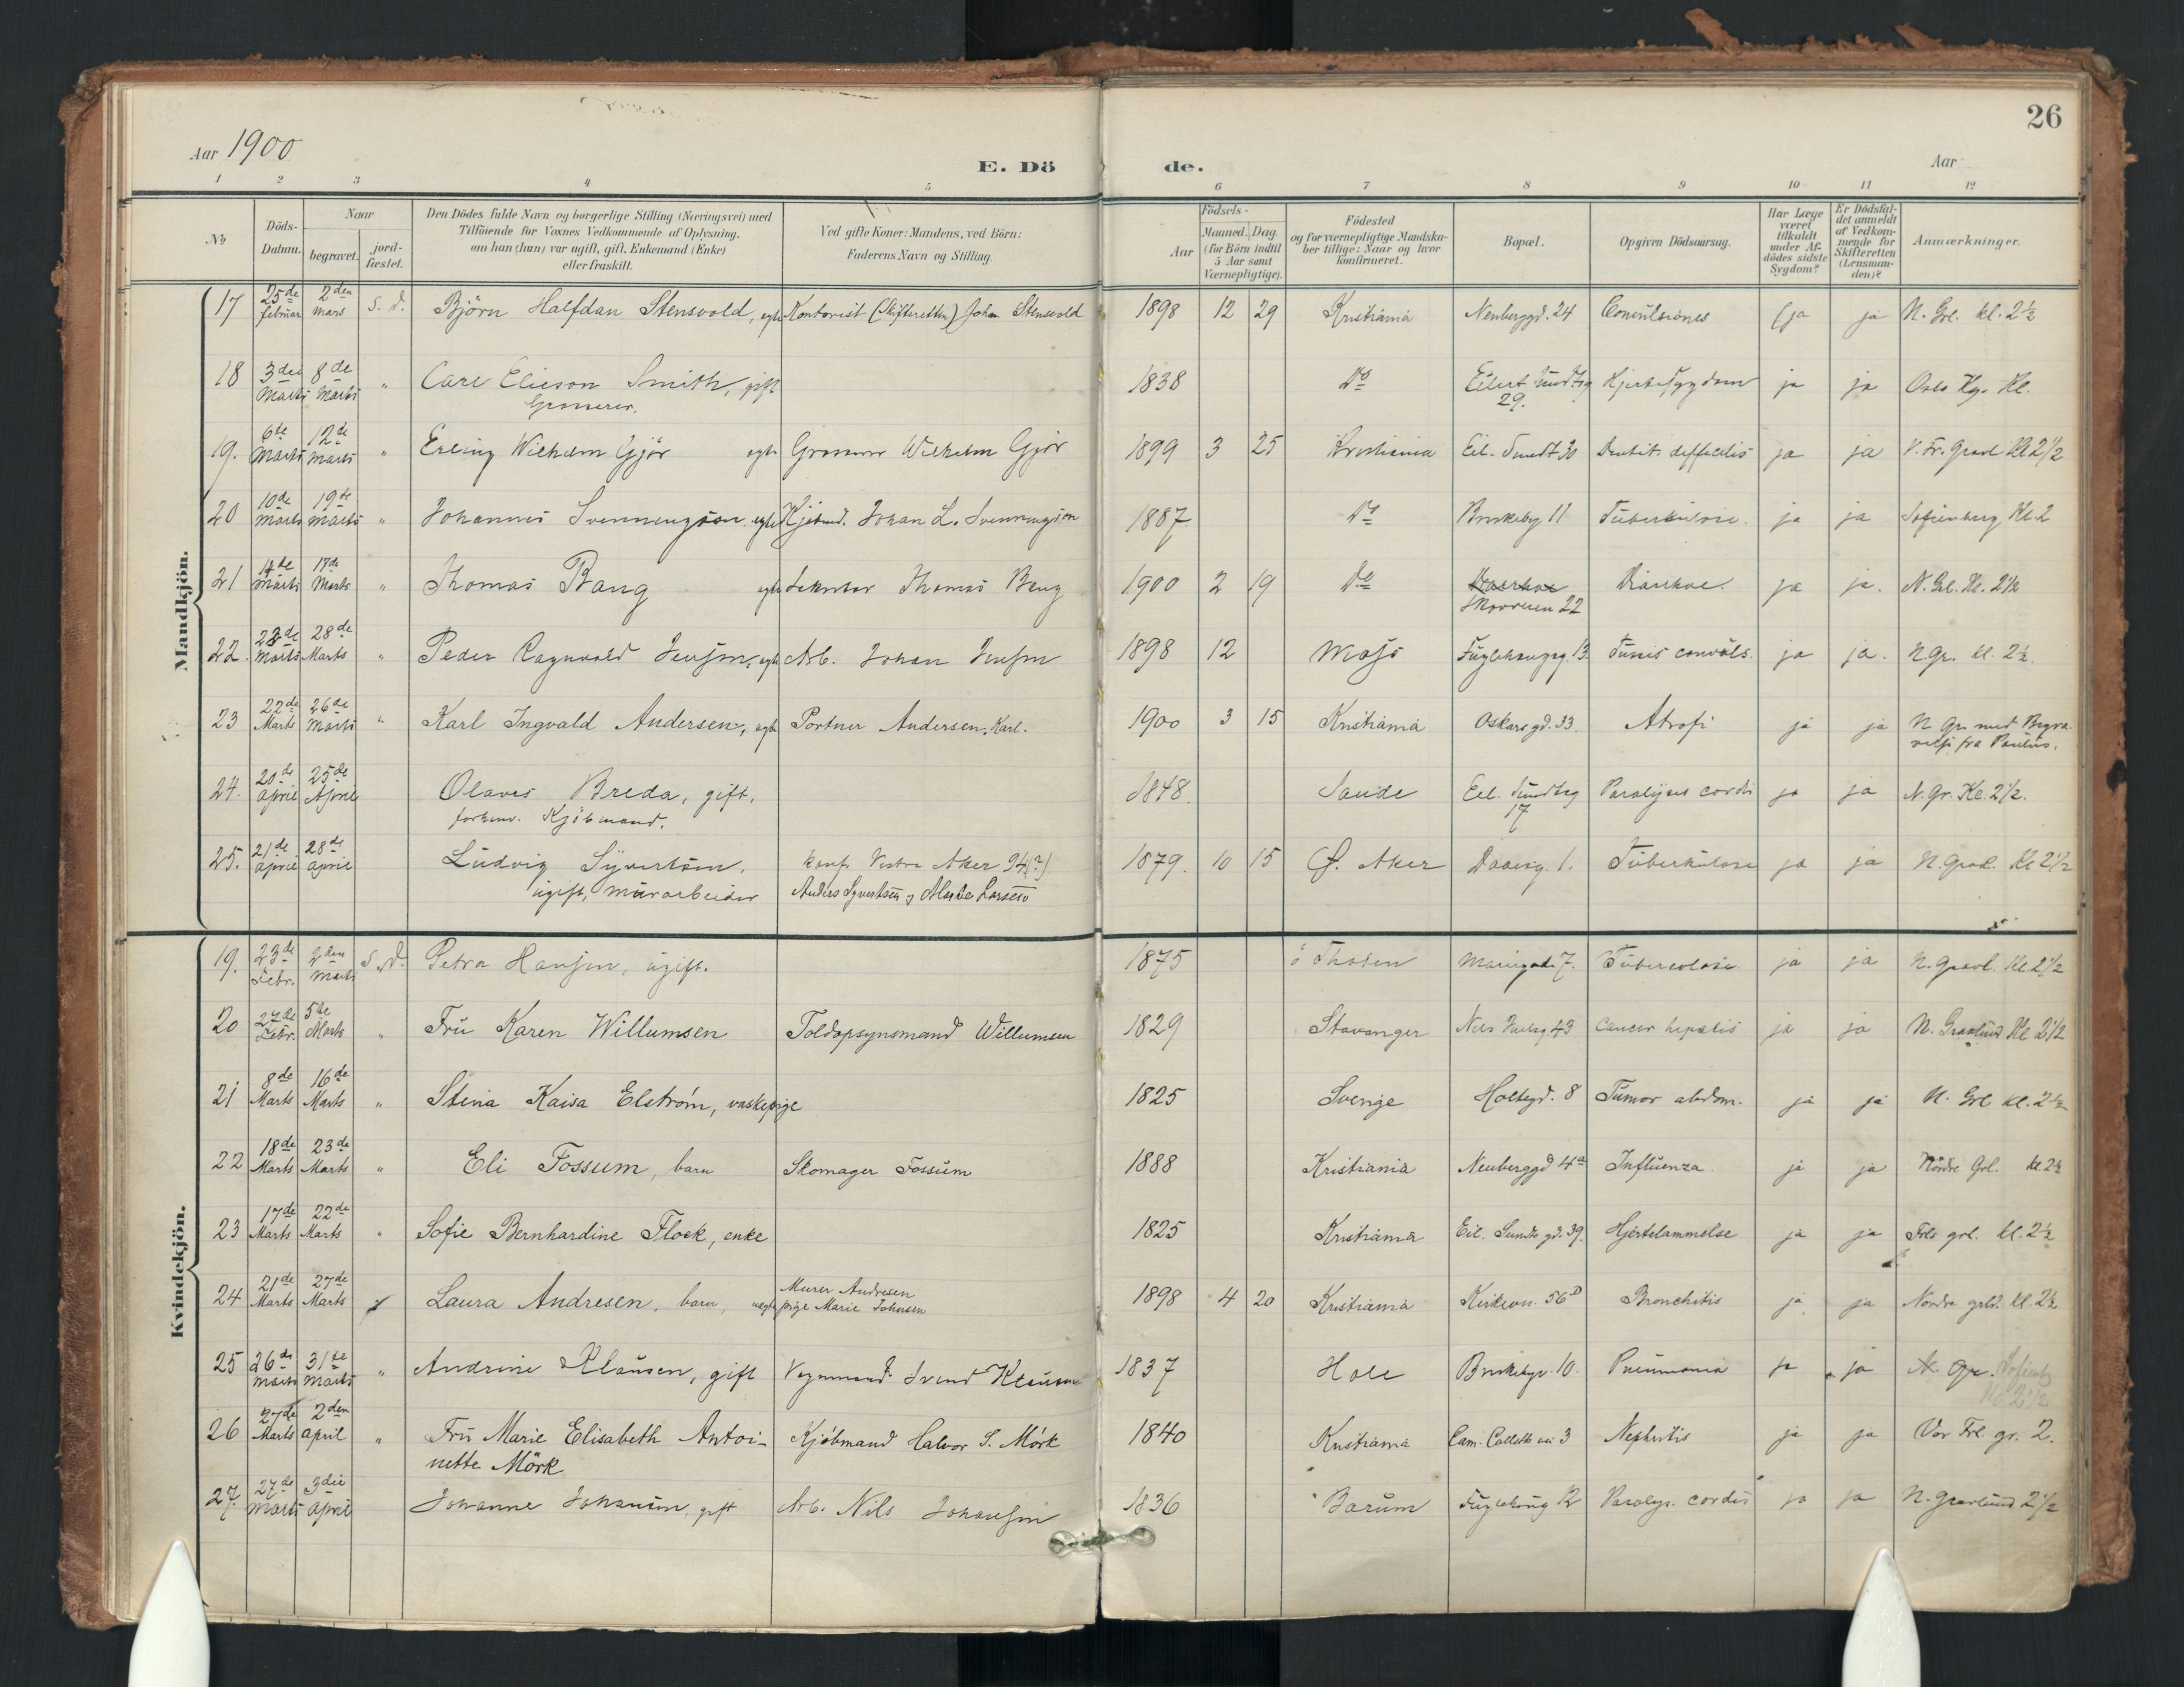 26
Aar 1900
E. Dö de.
Aar
1 2 3 4 5 6 7 8 9 10 11 12
№
Döds-Datum.
Naar begravet. jordfæstet.
Den Dödes fulde Navn og borgerlige Stilling (Næringsvei) med
Tilföiende for Voxnes Vedkommende af Oplysning,
om han (hun) var ugift, gift, Enkemand (Enke)
eller fraskilt.
Ved gifte Koner: Mandens, ved Börn:
Faderens Navn og Stilling.
Födsels-
Aar Maaned. Dag.
(for Börn indtil
5 Aar samt
Værnepligtige).
Födested
og for værnepligtige Mandska-
ber tillige: Naar og hvor
konfirmeret.
Bopæl.
Opgiven Dödsaarsag.
Har Læge
været
tilkaldt
under Af-
dödes sidste
Sygdom?
Er Dödsfal-
det anmeldt
af Vedkom-
mende for
Skifteretten
(Lensman-
den)?
Anmærkninger.
Mandkjön.
17 25de februar 2den Mars S. d. Björn Halfdan Stensvold, egte Kontorist (Skifteretten) Johan Stensvold 1898 12 29 Kristiania Neuberggd. 24 Convulsiones ja ja N. Grl. kl. 2½
18 3die Marts 8de Marts " Carl Elieson Smith, gift 1838 Do Eilert Sundtsg 29. Hjertesygdom ja ja Oslo Kg. Kl.
Grosserer.
19. 6te Marts 12te Marts " Erling Wilhelm Gjör egte Grosserer Wilhelm Gjör 1899 3 25 Kristiania Eil. Sundt 30 Dentit. difficilis ja ja V. Fr. Gravl Kl 2½
20 10de Marts 19de Marts " Johannes Svenningson egte Kjøbmd. Johan L. Svenningson 1887 Do Briskeby 11 Tuberkulose. ja ja Sofienberg Kl. 2
21 Marts 17de Marts " Thomas Bang egte Sekretær Thomas Bang 1900 2 19 Do Skovveien 22 Diarrhoe. ja ja. N. Grl. Kl. 2½
22. Marts 28de Marts " Peder Ragnvald Jensen, egte Arb. Johan Jensen 1898 12 Moss Fuglehaugg. 13. Tussis convuls. ja ja. N Gr. kl. 2½.
23 22de Marts 26de Marts " Karl Ingvald Andersen, egte Portner Andersen, Karl. 1900 3 15 Kristiania Oskarsgd. 33. Atrofi ja ja N Gr. med Begra-
velse fra Paulus.
24. 20de April 25de April Olaves Breda, gift, 1848. Sande Eil. Sundtsg 17 Paralysis cordis ja ja N. Gr. Kl. 2½.
forhenv. Kjöbmand.
25. 21de April 28de April Ludvig Syvertsen, konf. Vestre Aker 94(?) 1879. 10 15 Ø. Aker Daaesg. 1. Tuberkulose ja ja N. Gravl. Kl 2½
ugift, murarbeider Anders Syvertsen og Marthe Larsen
Kvindekjön.
19. 23de Febr. 2den Marts S. d. Petra Hansen, ugift. 1875 ö Thoten Mariegade 7. Tuberculose. ja ja N. Gravl. Kl 2½
20 27de Febr. 5te Marts " Fru Karen Willumsen Toldopsynsmand Willumsen 1829 Stavanger Nils Juelsg. 43 Cancer hepatis ja ja N. Gravlund Kl 2½
21 8de Marts 16de Marts " Stina Kaisa Elström, vaskepige 1825 Sverige Holtegd. 8 Tumor abdom. ja ja N. Grl kl. 2½
22 18de Marts 23de Marts " Eli Fossum, barn Skomager Fossum 1888 Kristiania Neuberggd 4a Influenza. ja ja Nordre Grl. kl. 2½
23 17de Marts 22de Marts " Sofie Bernhardine Flock, enke 1825 Kristiania Eil. Sundts gd. 39. Hjertelammelse ja ja Frls grl. kl. 2½
24 21de Marts 27de Marts Laura Andresen, barn, uegte Murer Andresen
pige Marie Johnsen 1898 4 20 Kristiania Kirkevn. 56D Bronchitis ja ja Nordre grld. kl. 2½
25 26de Marts 31te Marts " Andrine Klausen, gift Vognmand Svend Klausen 1837 Hole Briskebyv. 10. Pneumonia ja ja N. Gr. Sofienb Kl 2½
26 27de Marts 2den April " Fru Marie Elisabeth Antoi- Kjöbmand Halvor S. Mörk 1840 Kristiania Cam. Colletts vei 3 Nephritis ja ja Vor Frl. gr. 2.
nette Mörk
27. 27de Marts 3die April Johanne Johansen, gift Arb. Nils Johansen 1836 Bærum Fuglehaug 12 Paralys. cordis ja ja N. Gravlund 2½